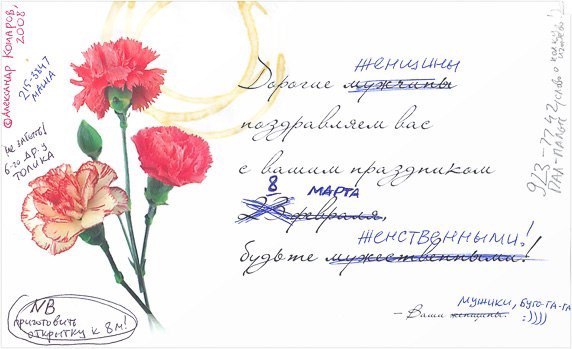 ©Александр Комаров,
2008
215-3847
МАША
НЕ ЗАБЫТЬ!
6-го ДР. У
ТОЛИКА
ЖЕНЩИНЫ
Дорогие мужчины
поздравляем вас
с вашим праздником
8 МАРТА
23 февраля,
ЖЕНСТВЕННЫМИ!
будьте мужественными!
МУЖИКИ, БУГО-ГА-ГА
– Ваши женщины. :))))
NB
ПРИГОТОВИТЬ
ОТКРЫТКУ К 8М!
923-77-42
ПАЛ-ПАЛЫЧ